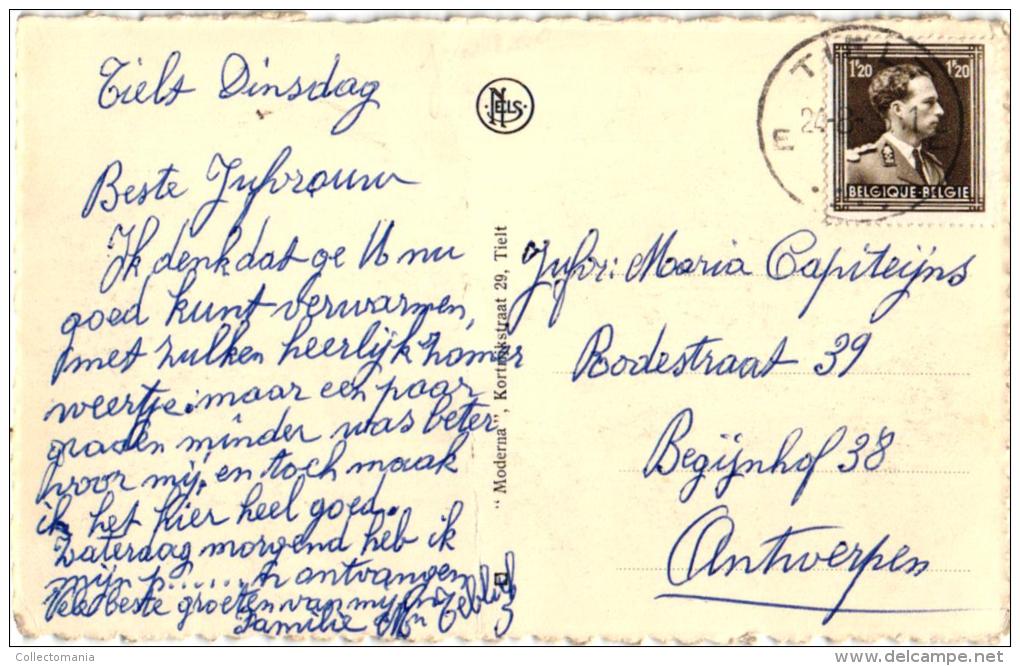 Tielt Dinsdag
Beste Jufvrouw
Ik denk dat ge U nu
goed kunt verwarmen,
met zulken heerlijk zomer
weertje. maar een paar
graden minder was beter
voor mij, en toch maak
ik het hier heel goed.
Zaterdag morgend heb ik
mijn p...... ontvangen
Vele beste groeten van mij en
Familie
NELS
"Moderna", Kortrijkstraat 29, Tielt
TIELT
24-8-
E E
1F20 1F20
BELGIQUE-BELGIE
Jufvr: Maria Capiteijns
Rodestraat 39
Begijnhof 38
Antwerpen
Collectomania
www.delcampe.net